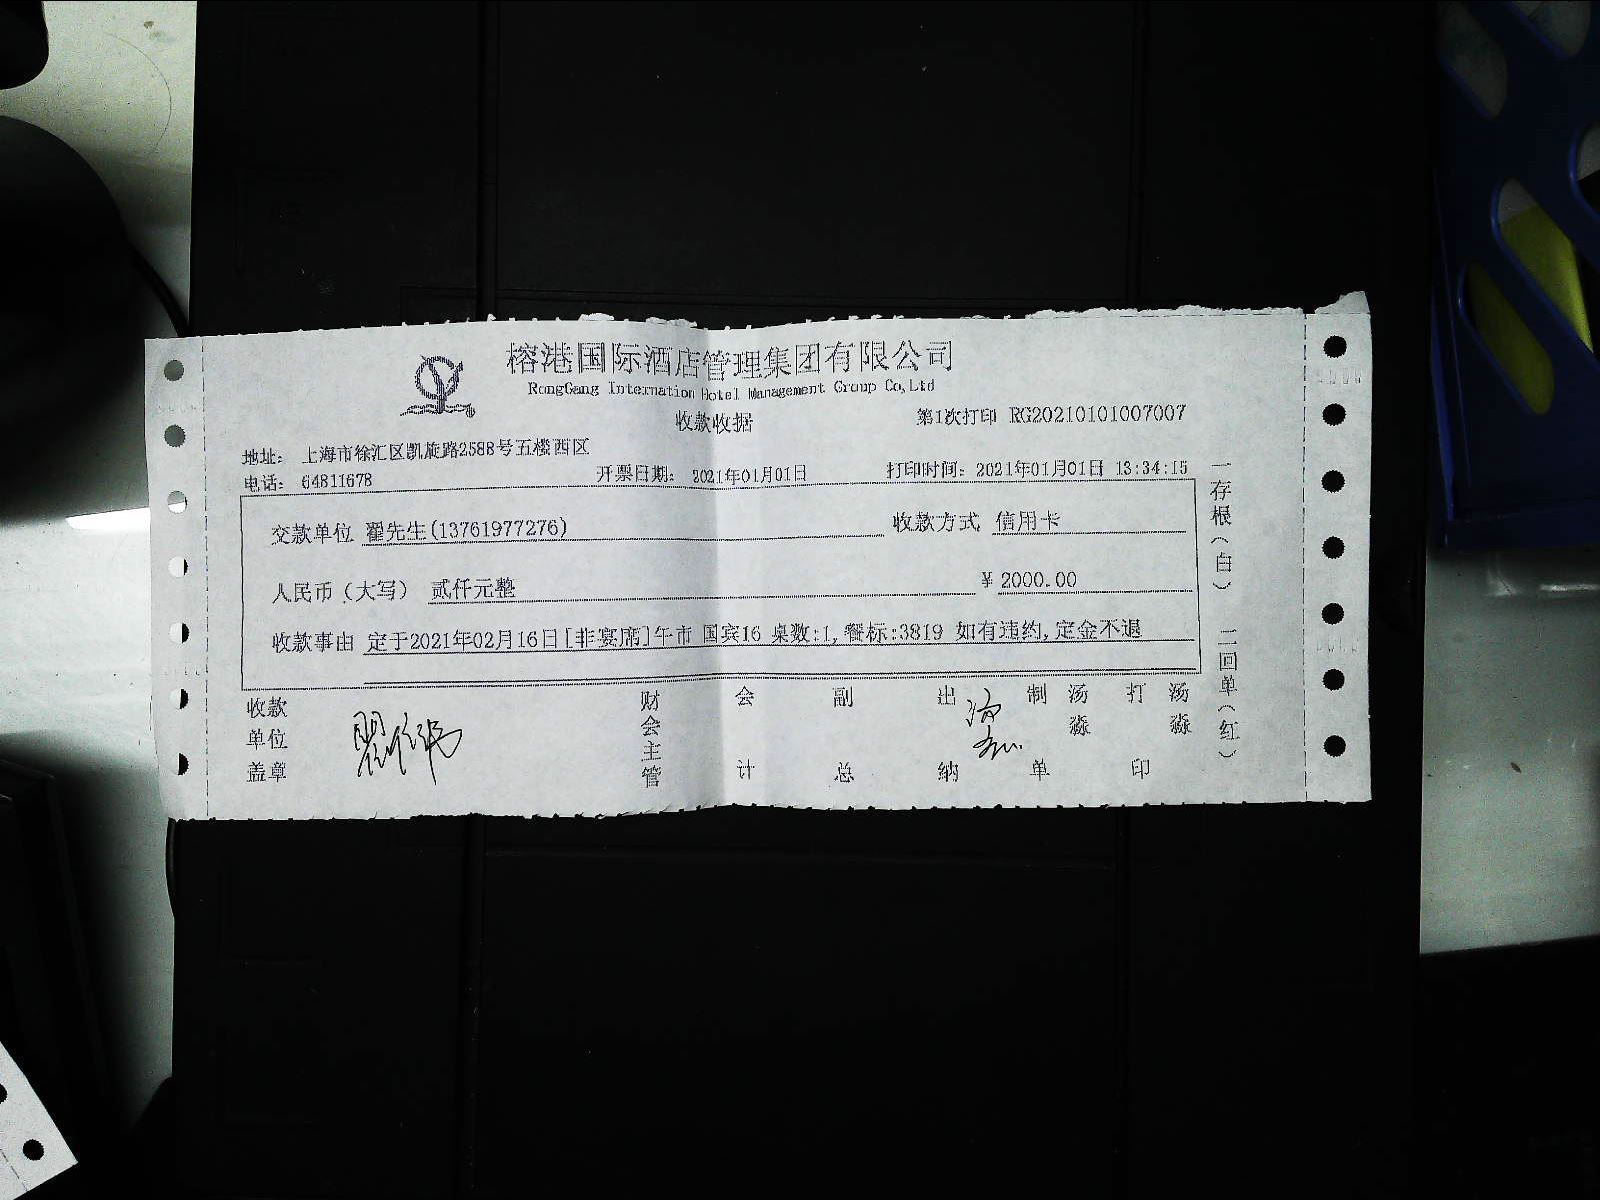 榕港国际酒店管理集团有限公司
RongGang Internation Hotel Management Group Co,Ltd
收款收据
第1次打印 RG20210101007007
地址: 上海市徐汇区凯旋路2588号五楼西区
电话: 64811678 开票日期: 2021年01月01日 打印时间: 2021年01月01日 13:34:15
交款单位 翟先生(13761977276) 收款方式 信用卡
人民币(大写) 贰仟元整 ¥ 2000.00
收款事由 定于2021年02月16日[非宴席]午市 国宾16 桌数:1,餐标:3819 如有违约,定金不退
收款单位盖章 财会主管 会计 副总 出纳 制单 汤淼 打印 汤淼
一存根(白) 二回单(红)